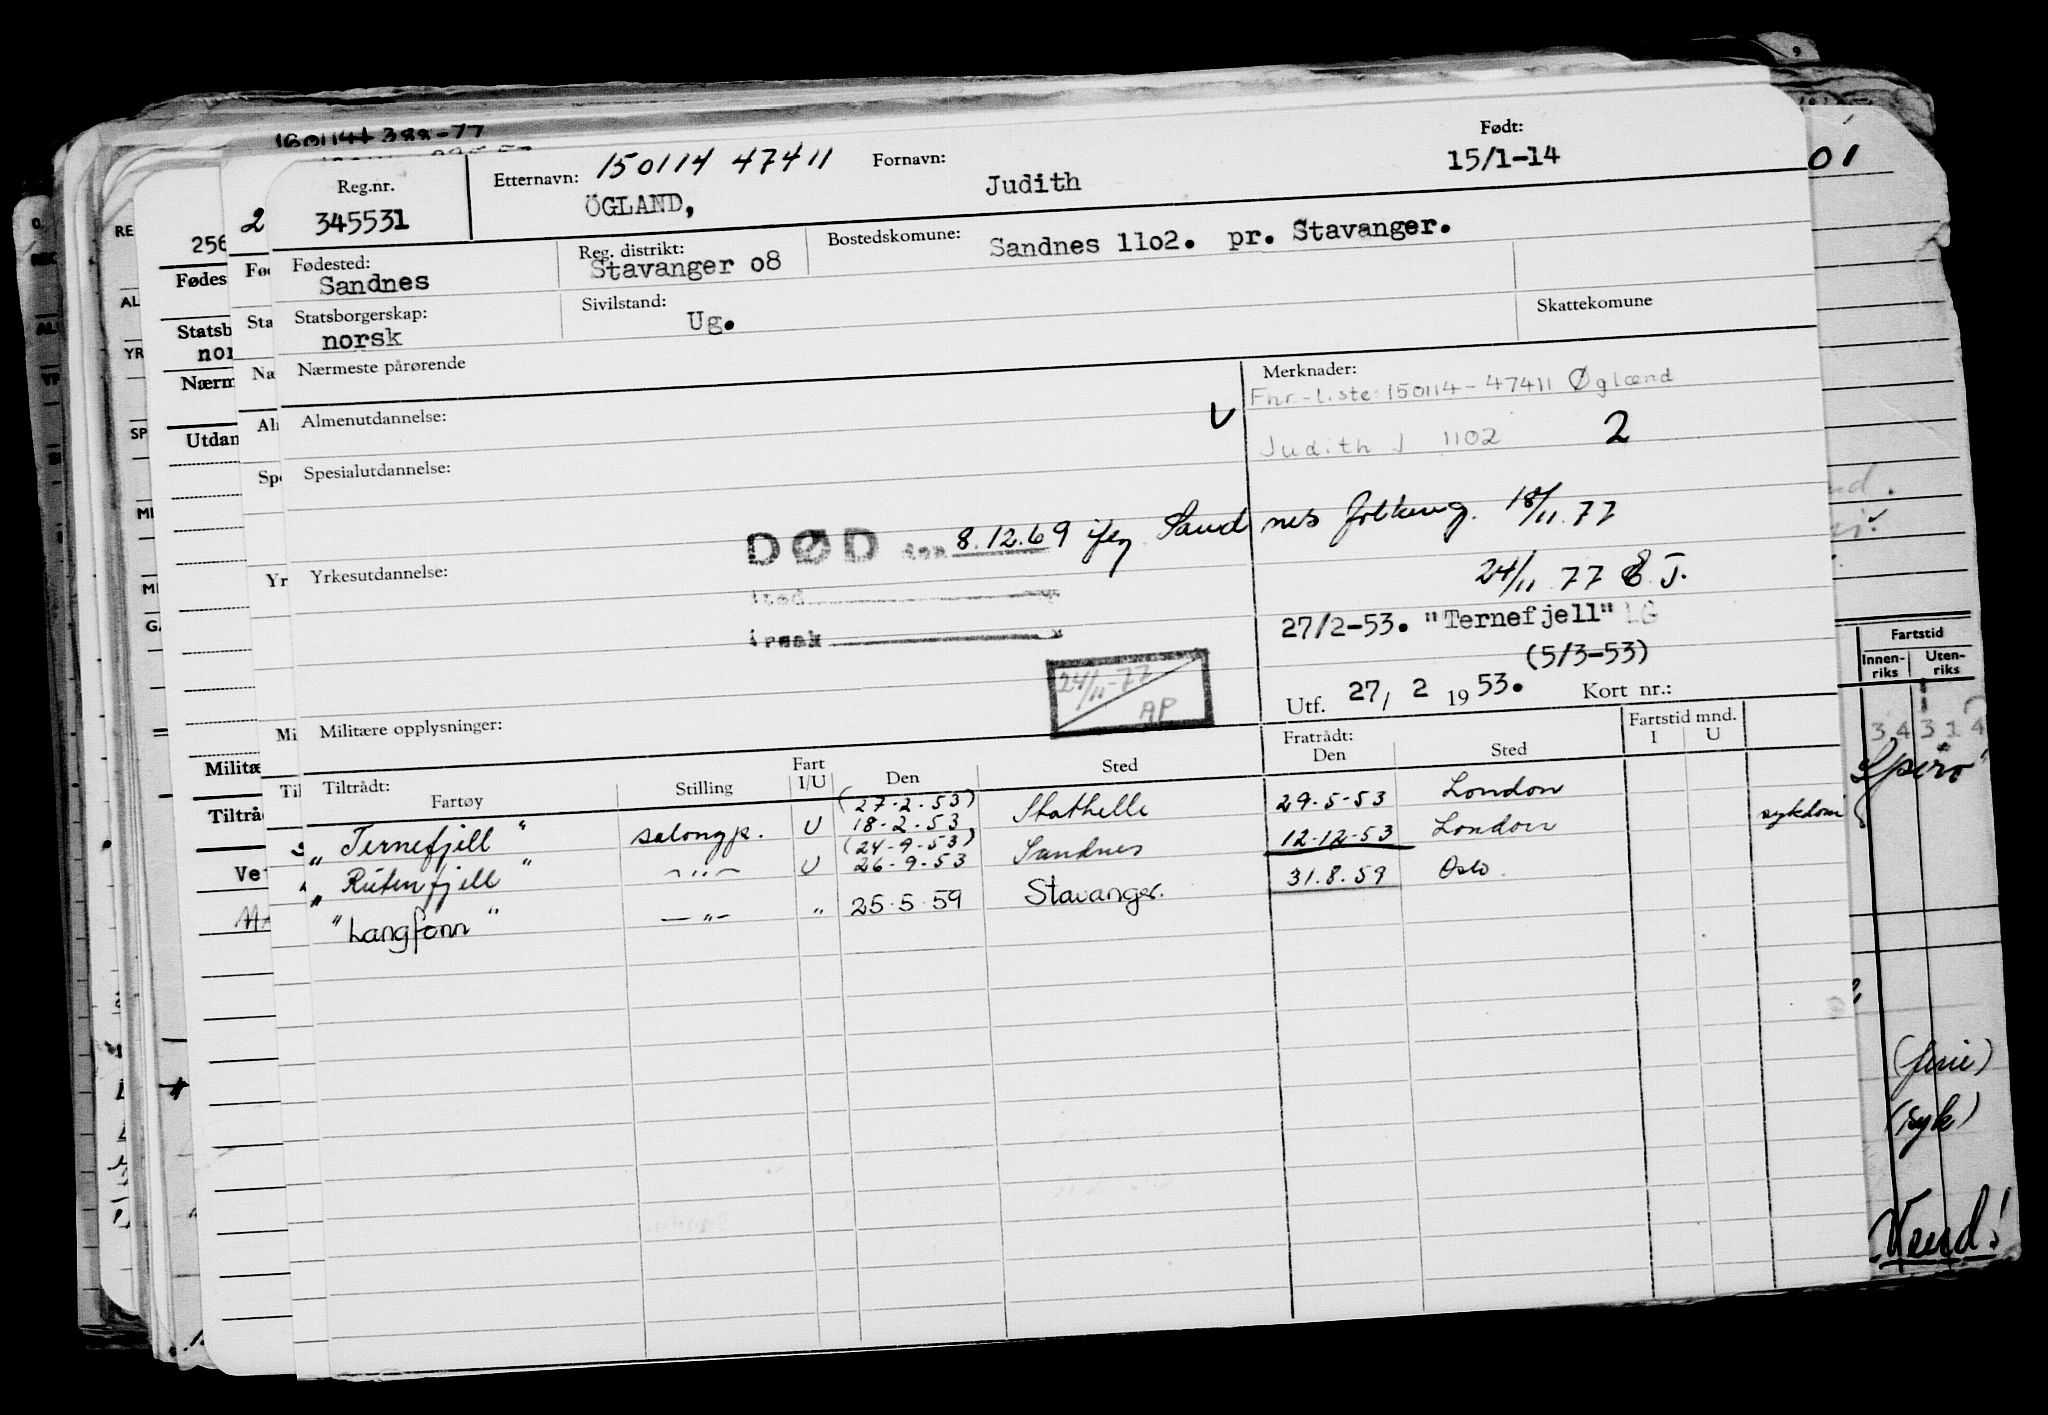 160114 388-77
Født:
Reg.nr. Etternavn: 150114 47411 Fornavn: 15/1-14 01
2 345531 ÖGLAND, Judith
256
Fødested: Reg. distrikt: Bostedskomune: Sandnes 11o2. pr. Stavanger.
Sandnes Stavanger o8
Statsborgerskap: Sivilstand: Skattekomune
norsk Ug.
Nærmeste pårørende Merknader:
Fnr.-liste: 150114-47411 Øglænd
Almenutdannelse: V
Judith J 1102 2
Spesialutdannelse:
DØD den 8.12.69 ifølg Sandnes folkereg. 18/11.77
Yrkesutdannelse: 24/11 77 E J.
i sted
27/2-53. "Ternefjell" LG
årsak
(5/3-53)
24/11-77
AP
Utf. 27/ 2 1953. Kort nr.:
Militære opplysninger:
Fratrådt: Fartstid mnd.
Tiltrådt: Fart Den Sted I U
Fartøy Stilling I/U Den Sted
(27-2-53)
"Ternefjell" salongp. U 18-2-53 Stathelle 29-5-53 London
(24-9-53)
"Rutenfjell" -"- U 26-9-53 Sandnes 12-12-53 London sykdom
"Langfonn" -"- " 25.5.59 Stavanger. 31.8.59 Oslo.
Fartstid
Innen-riks Uten-riks
3 4 3 1 4
Spiro"
(ferie)
(syk)
Vend!